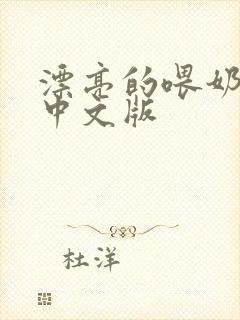 漂亮的喂奶
中文版
杜洋